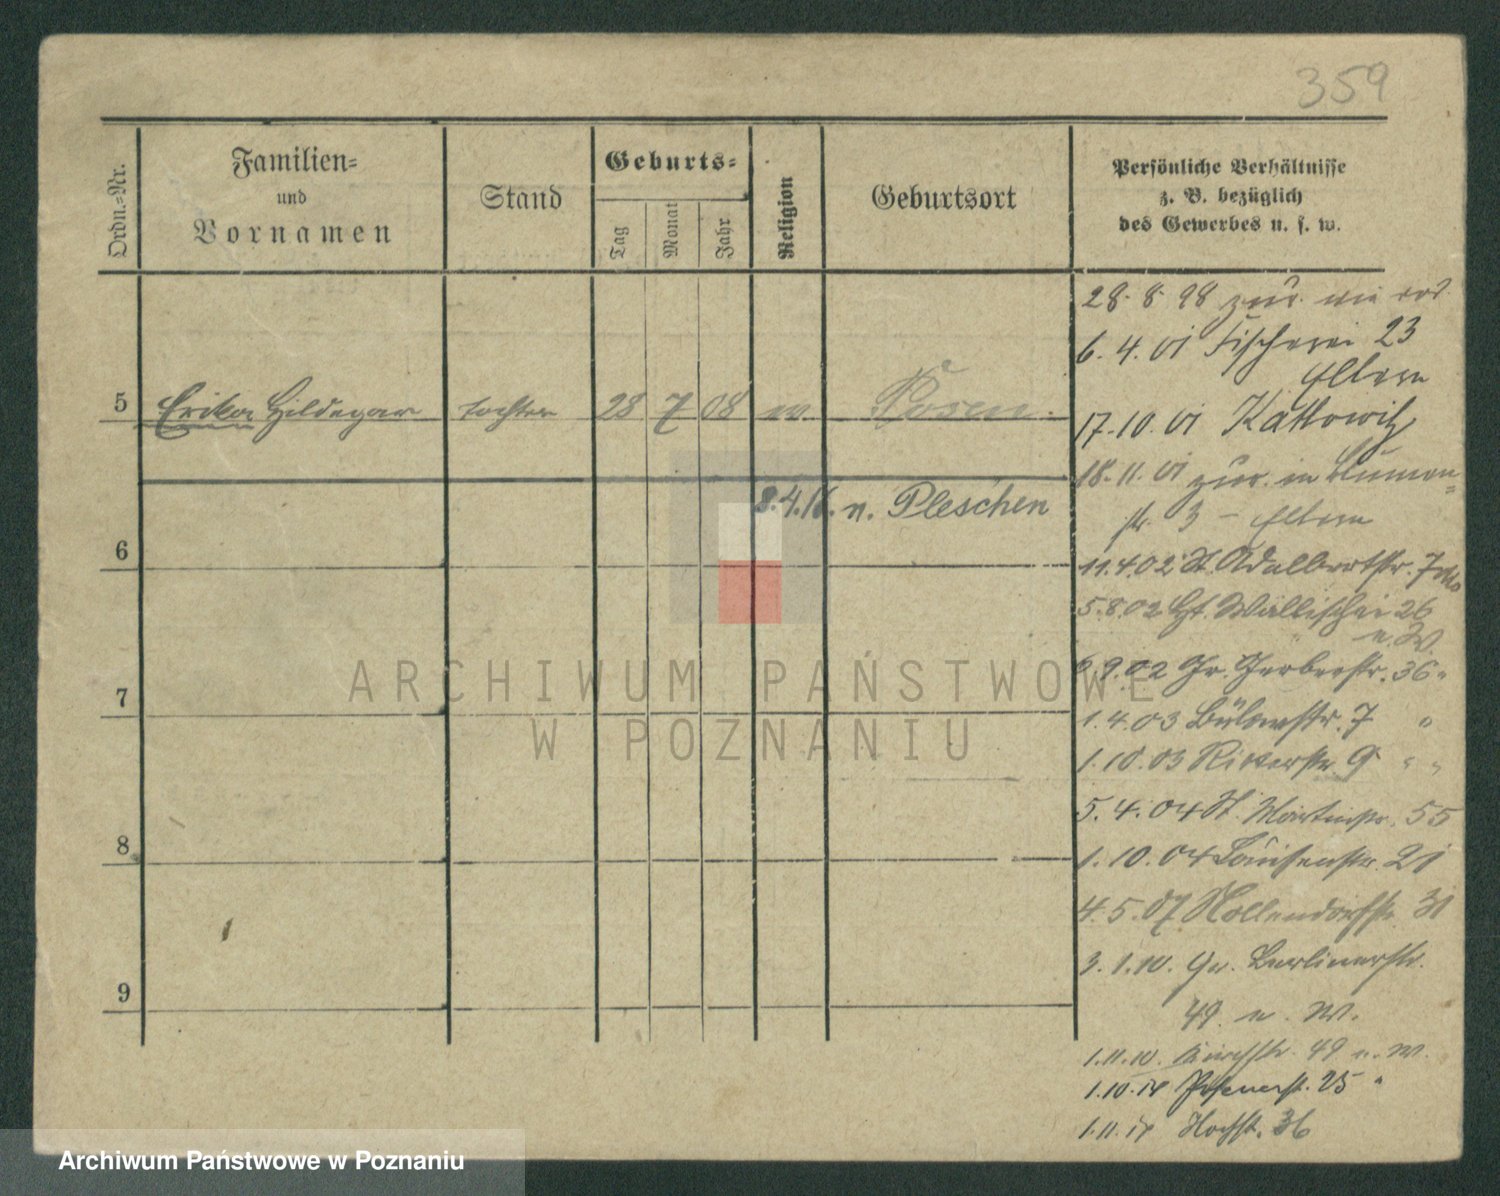 359
Ordn.-Nr.
Familien-
und
Vornamen
Stand
Geburts-
Tag
Monat
Jahr
Religion
Geburtsort
Persönliche Verhältnisse
z. B. bezüglich
des Gewerbes u. s. w.
5 Erika Hildegar tochter 28 7 08 Posen.
8.4.16. n. Pleschen
6
7
8
9
28. 8. 98 zur. wie
6. 4. 01 Fischerei 23
Eltern
17. 10. 01 Kattowitz
18. 11. 01 zur. in Blumen=
str. 3 - Eltern
11.4.02 St. Adalbertstr. 7
5.8.02 Wallischei 26
u. W.
6.9.02 Gr. Gerberstr. 36 "
1.4.03 Bülowstr. 7 "
1.10.03 Ritterstr. 9 " "
5.4.04 St. Martinstr. 55
1.10.04 Louisenstr. 21
4.5.07 Nollendorfstr. 31
3.1.10. Gr. Berlinerstr.
49 u. W.
1.11.10. Kirchstr. 49 u. W.
1.10.14 Posenerst. 25 "
1.11.14 Hochst. 36
ARCHIWUM PAŃSTWOWE
W POZNANIU
Archiwum Państwowe w Poznaniu